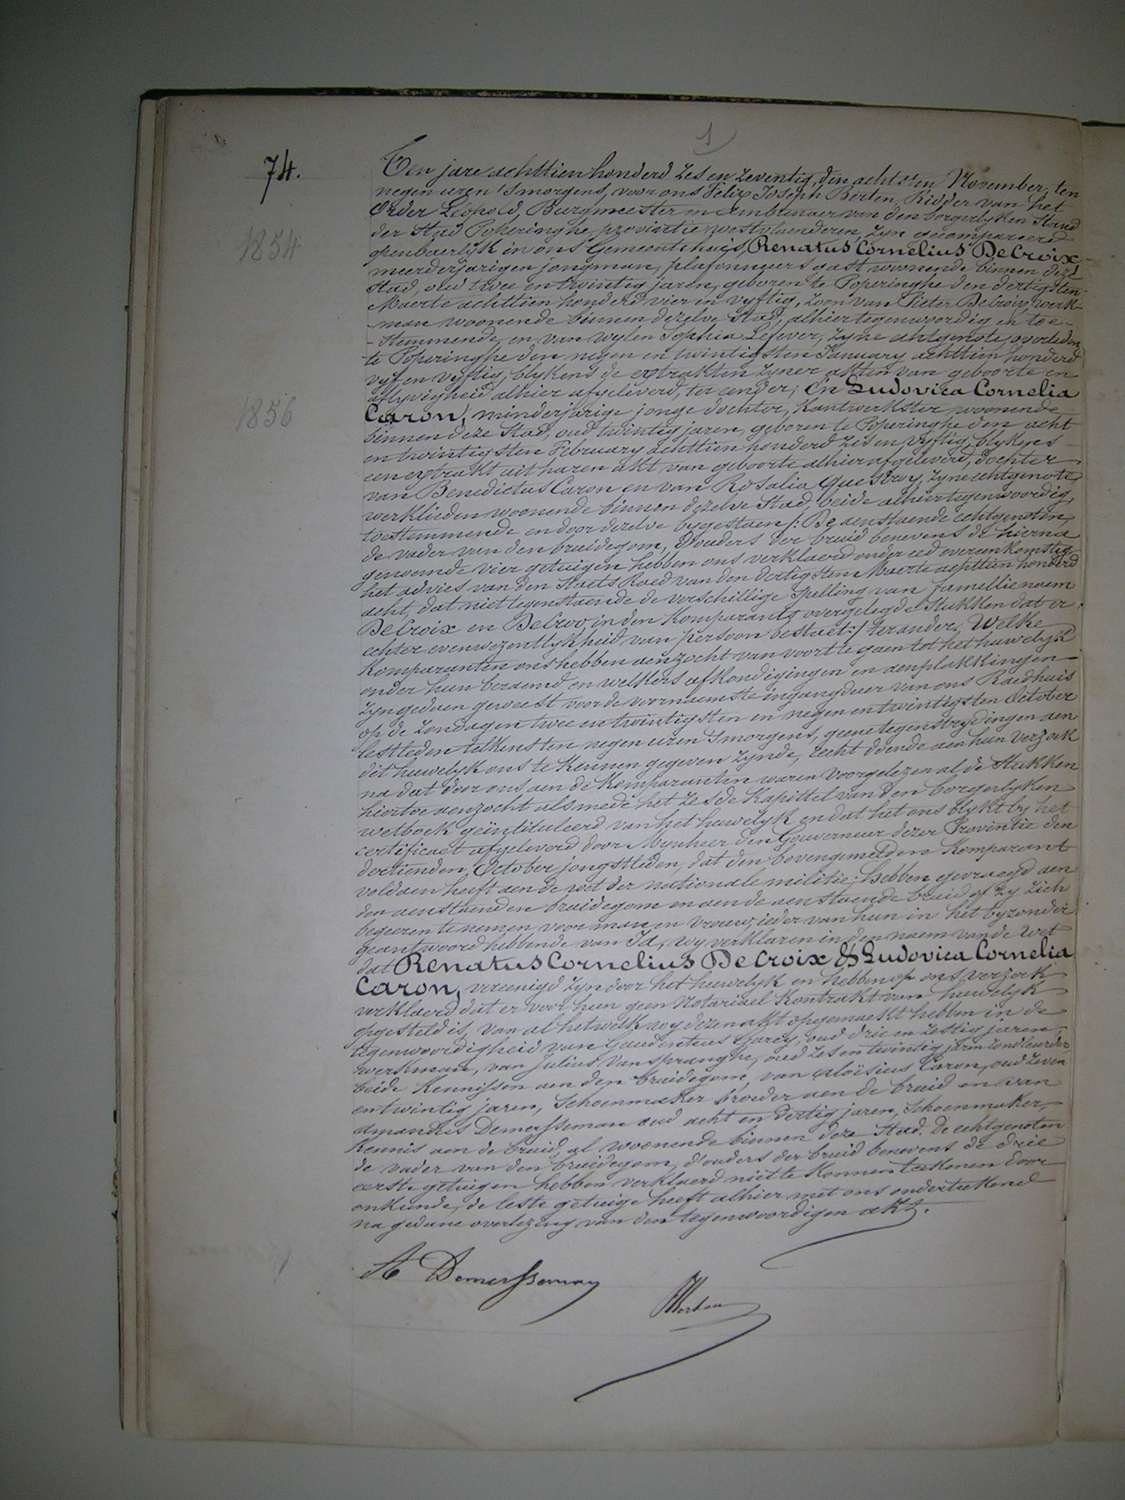 1
74.
Ten jare achttien honderd zes en zeventig, den achtsten November, ten
negen uren 'smorgens, voor ons Felix Joseph Berten, Ridder van het
Order Leopold, Burgmeester en Ambtenaer van den borgerlyken Stand
der Stad Poperinghe, provintie westvlaenderen, Zyn gecompareerd
1854
openbaerlyk in ons Gemeentehuis, Renatus Cornelius DeCroix,
meerderjarigen jongman, plafonneurs gast woonende binnen deze
Stad, oud twee en twintig jaren, geboren te Poperinghe den dertigsten
Maerte achttien honderd vier en vyftig, zoon van Pieter DeCroix, werk-
man woonende binnen dezelve Stad, alhier tegenwoordig en toe-
stemmende, en van wylen Sophia Lefever, Zyne echtgenote, overleden
te Poperinghe den negen en twintigsten January achttien honderd
vyf en vyftig, blykens de extrakten zyner akten van geboorte en
aflyvigheid alhier afgeleverd, ter eender; En Ludovica Cornelia
1856
Caron, minderjarige jonge dochter, Kantwerkster woonende
binnen deze Stad, oud twintig jaren, geboren te Poperinghe den acht
en twintigsten February achttien honderd zes en vyftig, blykens
een extrakt uit haren akt van geboorte alhier afgeleverd, dochter
van Benedictus Caron en van Rosalia Questroy, Zyne echtgenote
werklieden woonende binnen dezelve Stad, beide alhier tegenwoordig,
toestemmende en door dezelve bygestaen /: De aenstaende echtgenoten,
de vader van den bruidegom, d'ouders der bruid benevens de hierna
genoemde vier getuigen hebben ons verklaerd onder eed overeenkomstig
het advies van den Staets Raed van den dertigsten Maerte achttien honderd
acht, dat niettegenstaende de verschillige spelling van famillienaem
DeCroix en DeCroo in den Komparants overgelegde Stukken dat er
echter eenwezentlykheid van persoon bestaet:/ ter ander; Welke
Komparanten ons hebben aenzocht van voort te gaen tot het huwelyk
onder hun beraemd, en welkers afkondigingen en aenplakkingen
Zyn gedaen geweest voor de voornaemste ingangdeur van ons Raedhuis
op de Zondagen twee en twintigsten en negen en twintigsten October
lestleden telkens ten negen uren 'smorgens, geene tegenstrydingen aen
dit huwelyk ons te Kennen gegeven Zynde, recht doende aen hun verzoek
na dat door ons aen de Komparanten waren voorgelezen al de Stukken
hiertoe aenzocht alsmede het zesde Kapittel van den borgerlyken
wetboek geïntituleerd van het huwelyk, en dat het ons blykt by het
certificaet afgeleverd door Mynheer den Gouverneur dezer Provintie den
dertienden October jongstleden, dat den bovengemelden Komparant
voldaen heeft aen de wet der nationale militie; hebben gevraegd aen
den aenstaenden bruidegom en aen de aenstaende bruid of zy zich
begeeren te nemen voor man en vrouw, ieder van hun in het byzonder
geantwoord hebbende van Ja, wy verklaren in den naem van de wet
dat Renatus Cornelius DeCroix & Ludovica Cornelia
Caron, vereenigd Zyn door het huwelyk en hebben op ons verzoek
verklaerd dat er voor hun geen Notariael Kontrakt van huwelyk
opgesteld is, van al het welk wy dezen akt opgemaekt hebben in de
tegenwoordigheid van Gaudentius Sarcy, oud drie en zestig jaren,
werkman, van Julius Vanspranghe, oud zes en twintig jaren
beide Kennissen aen den bruidegom, van Aloïsius Caron, oud zeven
en twintig jaren, Schoenmaker broeder aen de bruid en van
Amandus Demerssman oud acht en dertig jaren, Schoenmaker,
Kennis aen de bruid, al woonende binnen deze Stad. De echtgenoten
de vader van den bruidegom, d'ouders der bruid benevens de drie
eerste getuigen hebben verklaerd niet te Konnen teekenen door
onkunde, de leste getuige heeft alhier met ons onderteekend
na gedane overlezing van den tegenwoordigen akt.
A Demerssman
Berten